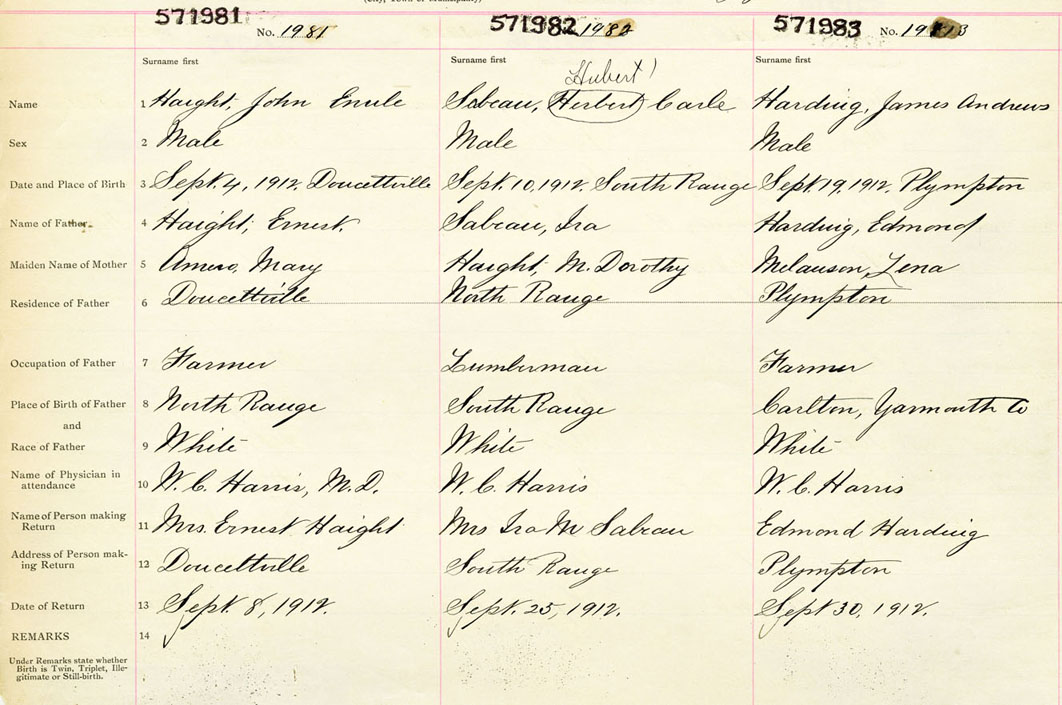 (City, Town or Municipality)
571981 No. 1981 571982 1982 571983 No.
Surname first Surname first Surname first
Hubert
Name 1 Haight, John Emile Sabeau, Herbert Carle Harding, James Andrews
Sex 2 Male Male Male
Date and Place of Birth 3 Sept. 4, 1912. Doucettville Sept. 10, 1912. South Range Sept 19, 1912. Plympton
Name of Father 4 Haight, Ernest. Sabeau, Ira Harding, Edmond
Maiden Name of Mother 5 Amero, Mary Haight, M. Dorothy Melanson, Zena
Residence of Father 6 Doucettville North Range Plympton
Occupation of Father 7 Farmer Lumberman Farmer
Place of Birth of Father 8 North Range South Range Carlton, Yarmouth Co
and
Race of Father 9 White White White
Name of Physician in
attendance 10 W. C. Harris, M.D. W. C. Harris W. C. Harris
Name of Person making
Return 11 Mrs. Ernest Haight Mrs Ira M Sabeau Edmond Harding
Address of Person mak-
ing Return 12 Doucettville South Range Plympton
Date of Return 13 Sept. 8, 1912. Sept. 25, 1912. Sept 30, 1912.
REMARKS 14
Under Remarks state whether
Birth is Twin, Triplet, Ille-
gitimate or Still-birth.